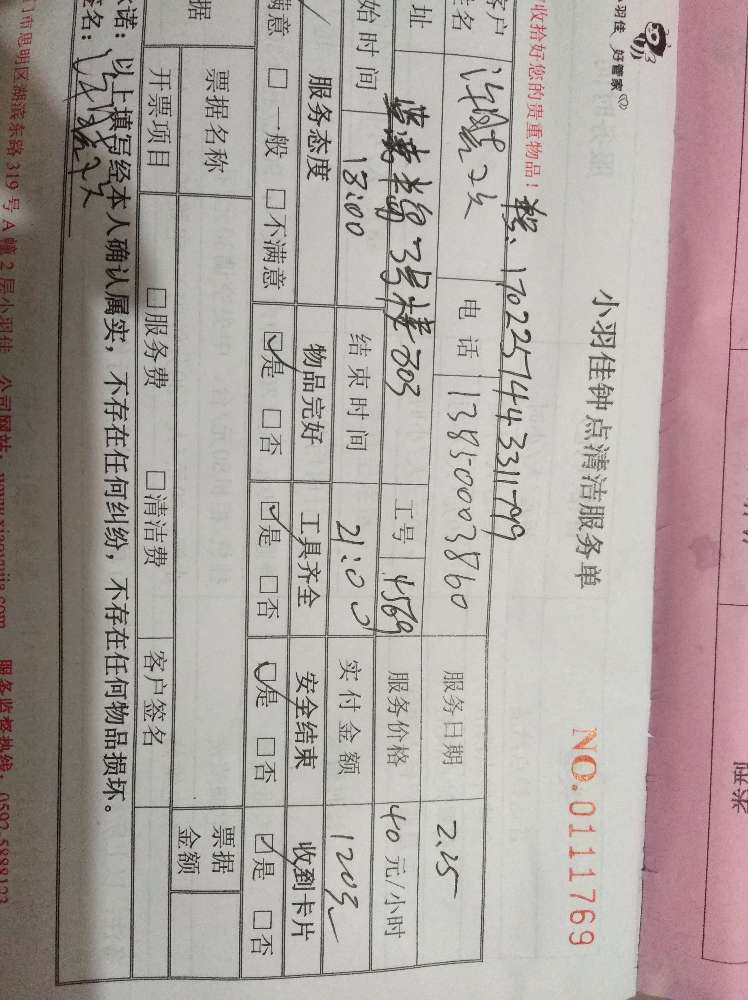 小羽佳 好管家
小羽佳钟点清洁服务单
NO.0111769
收拾好您的贵重物品!
170225144331179
客户 签名 电话 13850003860 服务日期 2.25
址 3号楼303 工号 4569 服务价格 40元/小时
始时间 18:00 结束时间 21:00 实付金额 120元
服务态度 物品完好 工具齐全 安全结束 收到卡片
满意 □一般 □不满意 ☑是 □否 ☑是 □否 ☑是 □否 ☑是 □否
据 票据名称 票据金额
开票项目 □服务费 □清洁费 客户签名
承诺:以上填写经本人确认属实,不存在任何纠纷,不存在任何物品损坏。
签名:
门市思明区湖滨东路319号A幢2层小羽佳 公司网站:www.xiaoyujia.com 服务监督热线:0592-5888123